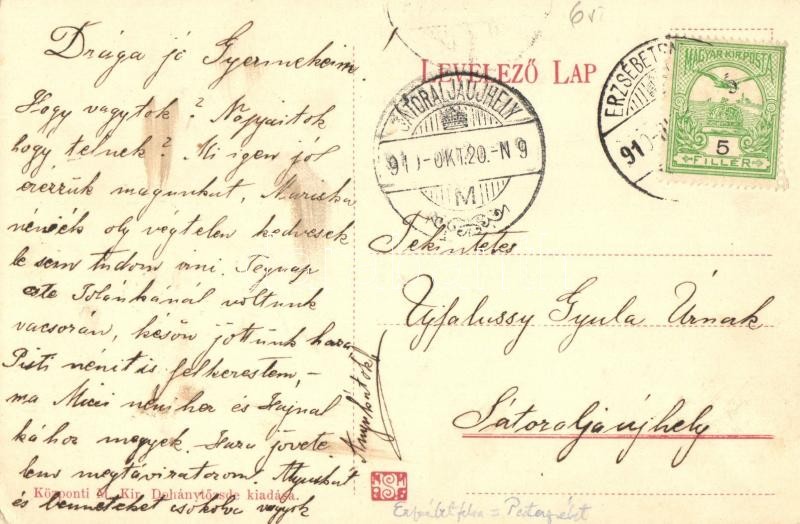 Drága jó Gyermekeim
Hogy vagytok? Napjaitok
hogy telnek? Mi igen jól
érezzük magunkat, Mariska
néniék oly végtelen kedvesek
le sem tudom írni. Tegnap
este Iolánkánál voltunk
vacsorán, későn jöttünk haza
Pisti nénit is felkerestem, –
ma Mici nénihez és Hajnal
kához megyek. Haza jövete
lem megtáviratozom. Anyukát
és benneteket csókolva vagyok
Központi M. Kir. Dohánytőzsde kiadása.
6
LEVELEZŐ LAP
SÁTORALJAÚJHELY
910-OKT.20.-N 9
M
ERZSÉBET
910
MAGYAR KIR. POSTA
5
FILLÉR
Tekintetes
Ujfalussy Gyula Úrnak
Sátoraljaújhely
Erzsébetfalva = Pesterzsébet